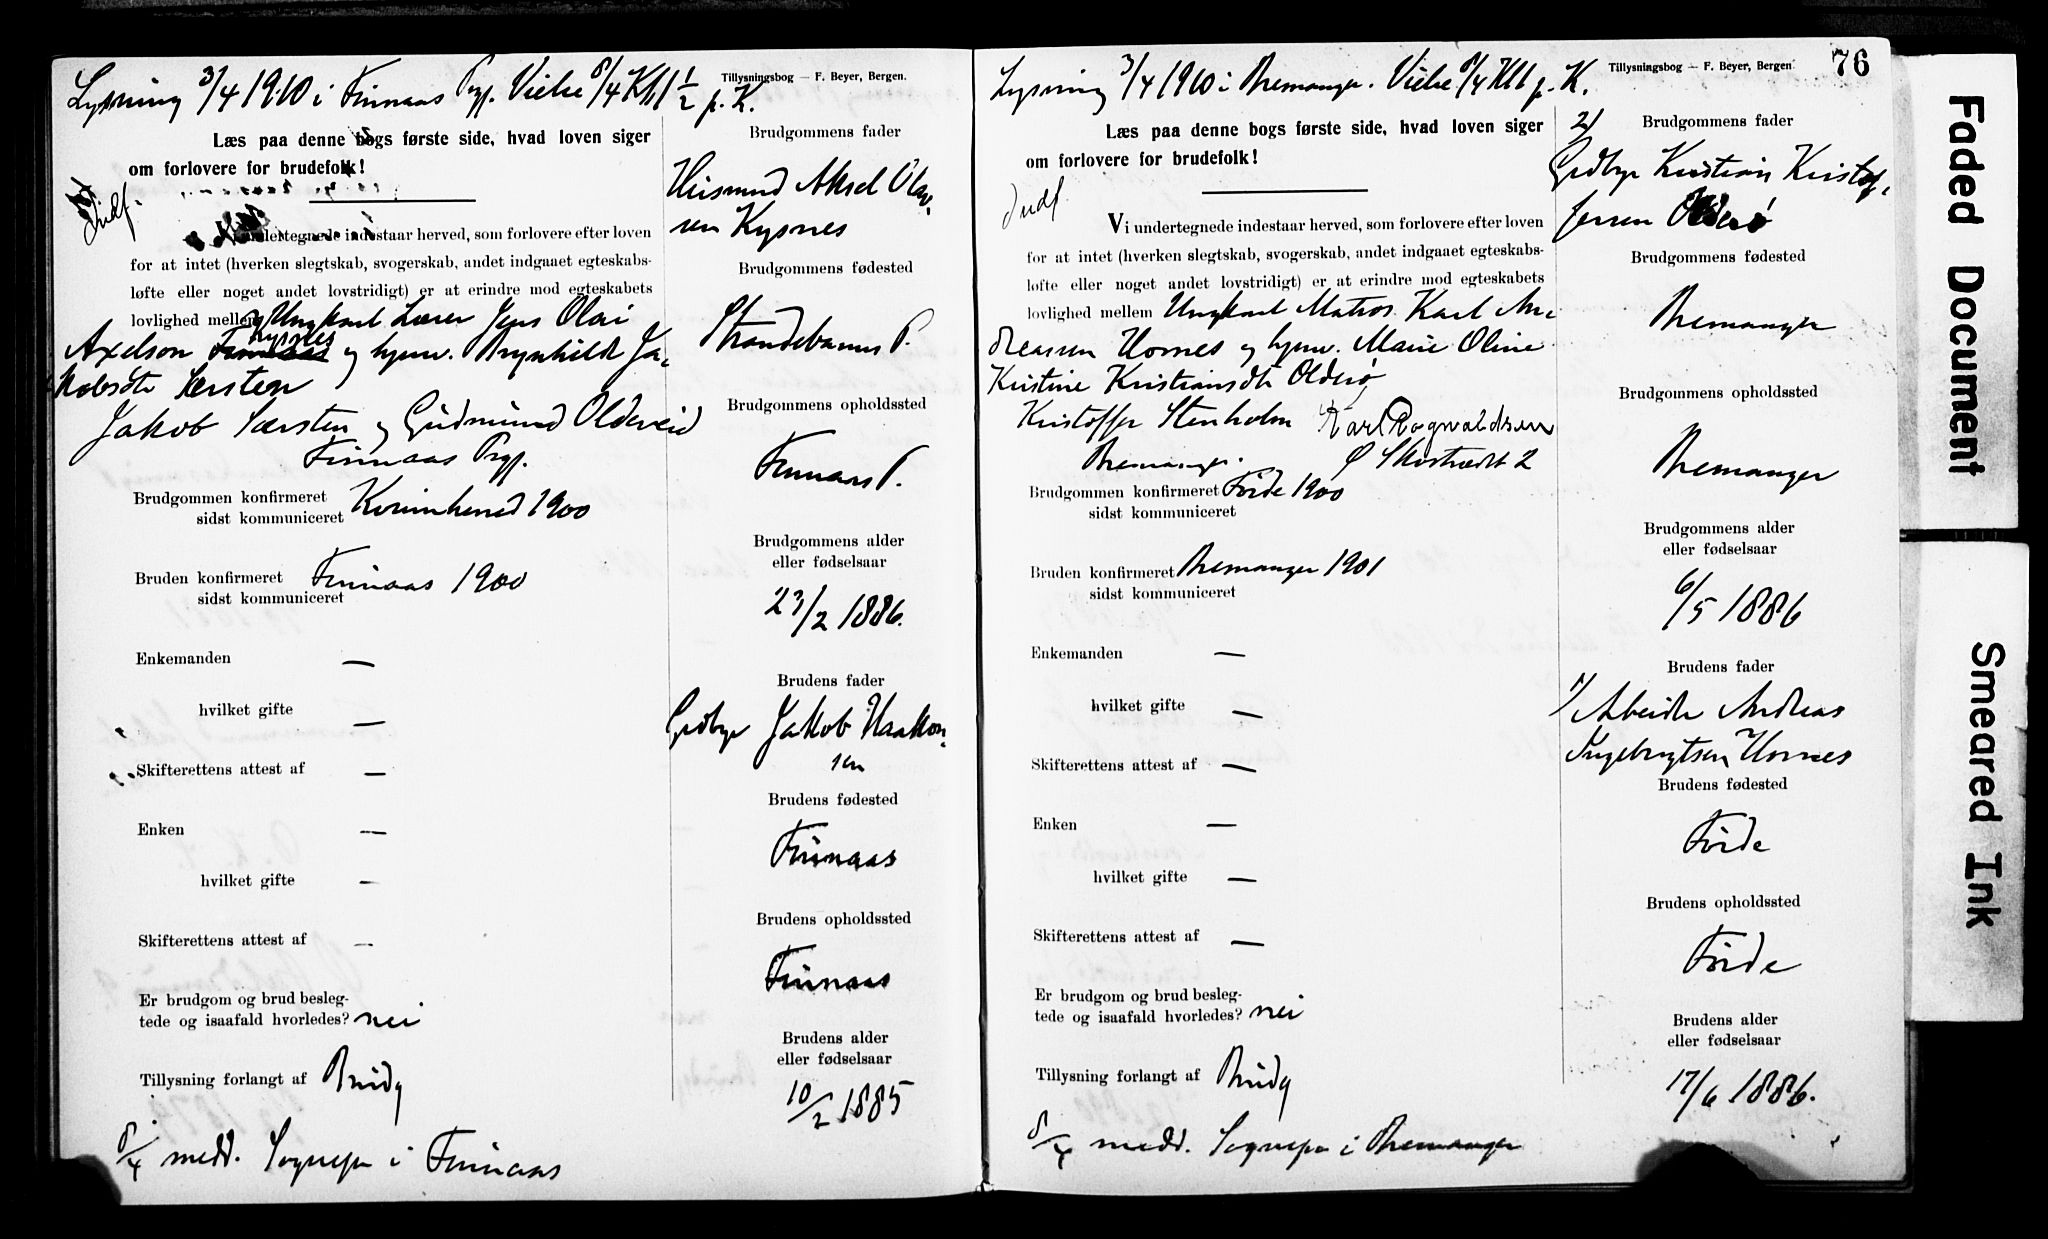 Lysning 3/4 1910 i Finnaas Prgj. Vielse 8/4 Kl 1 1/2 p. K.
Tillysningsbog — F. Beyer, Bergen.
Læs paa denne bogs første side, hvad loven siger
om forlovere for brudefolk!
Indf.
Vi undertegnede indestaar herved, som forlovere efter loven
for at intet (hverken slegtskab, svogerskab, andet indgaaet egteskabs-
løfte eller noget andet lovstridigt) er at erindre mod egteskabets
lovlighed mellem Ungkarl Lærer Jens Olai
Kysnes
Axelson Finnaas og hjmv. Brynhild Ja-
kobsdtr Særsten
Jakob Særsten og Gudmund Oldereid
Finnaas Prgj.
Brudgommen konfirmeret Kvinnherred 1900
sidst kommuniceret
Bruden konfirmeret Finnaas 1900
sidst kommuniceret
Enkemanden —
hvilket gifte —
Skifterettens attest af —
Enken —
hvilket gifte —
Skifterettens attest af —
Er brudgom og brud besleg-
tede og isaafald hvorledes? nei
Tillysning forlangt af Brudg
8/4 medd. Sognepr i Finnaas
Brudgommens fader
Aksel Olav-
sen Kysnes
Brudgommens fødested
Strandebarm P.
Brudgommens opholdssted
Finnaas P.
Brudgommens alder
eller fødselsaar
23/2 1886.
Brudens fader
Grdbr Jakob Haakon-
sen
Brudens fødested
Finnaas
Brudens opholdssted
Finnaas
Brudens alder
eller fødselsaar
10/2 1885
Lysning 3/4 1910 i Bremanger. Vielse 8/4 Kl 6 p. K.
Tillysningsbog — F. Beyer, Bergen
76
Læs paa denne bogs første side, hvad loven siger
om forlovere for brudefolk!
Indf.
Vi undertegnede indestaar herved, som forlovere efter loven
for at intet (hverken slegtskab, svogerskab, andet indgaaet egteskabs-
løfte eller noget andet lovstridigt) er at erindre mod egteskabets
lovlighed mellem Ungkarl Matros Karl An-
dreassen Hornes og hjmv. Marie Oline
Kristine Kristiansdtr Olderø
Kristoffer Stenholm Karl Rognvaldsen
Bremanger. Ø Skostrædet 2
Brudgommen konfirmeret Førde 1900
sidst kommuniceret
Bruden konfirmeret Bremanger 1901
sidst kommuniceret
Enkemanden —
hvilket gifte —
Skifterettens attest af —
Enken —
hvilket gifte —
Skifterettens attest af —
Er brudgom og brud besleg-
tede og isaafald hvorledes? nei
Tillysning forlangt af Brudg
8/4 medd. Sognepr i Bremanger
Brudgommens fader
2/ Grdbr Kristian Kristof-
fersen Olderø
Brudgommens fødested
Bremanger
Brudgommens opholdssted
Bremanger
Brudgommens alder
eller fødselsaar
6/5 1886
Brudens fader
1/ Arbeider Andreas
Ingebrigtsen Hornes
Brudens fødested
Førde
Brudens opholdssted
Førde
Brudens alder
eller fødselsaar
17/6 1886.
Faded Document
Smeared Ink